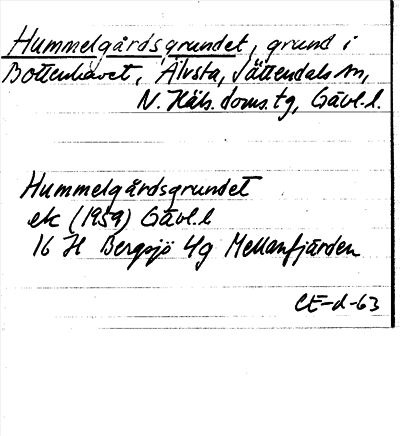 Hummelgårdsgrundet, grund i
Bottenhavet, Älvsta, Jättendals sn,
N. Häls. doms. tg, Gävl. l.
Hummelgårdsgrundet
ek (1959) Gävl. l
16 H Bergsjö 4g Mellanfjärden
CE-d-63